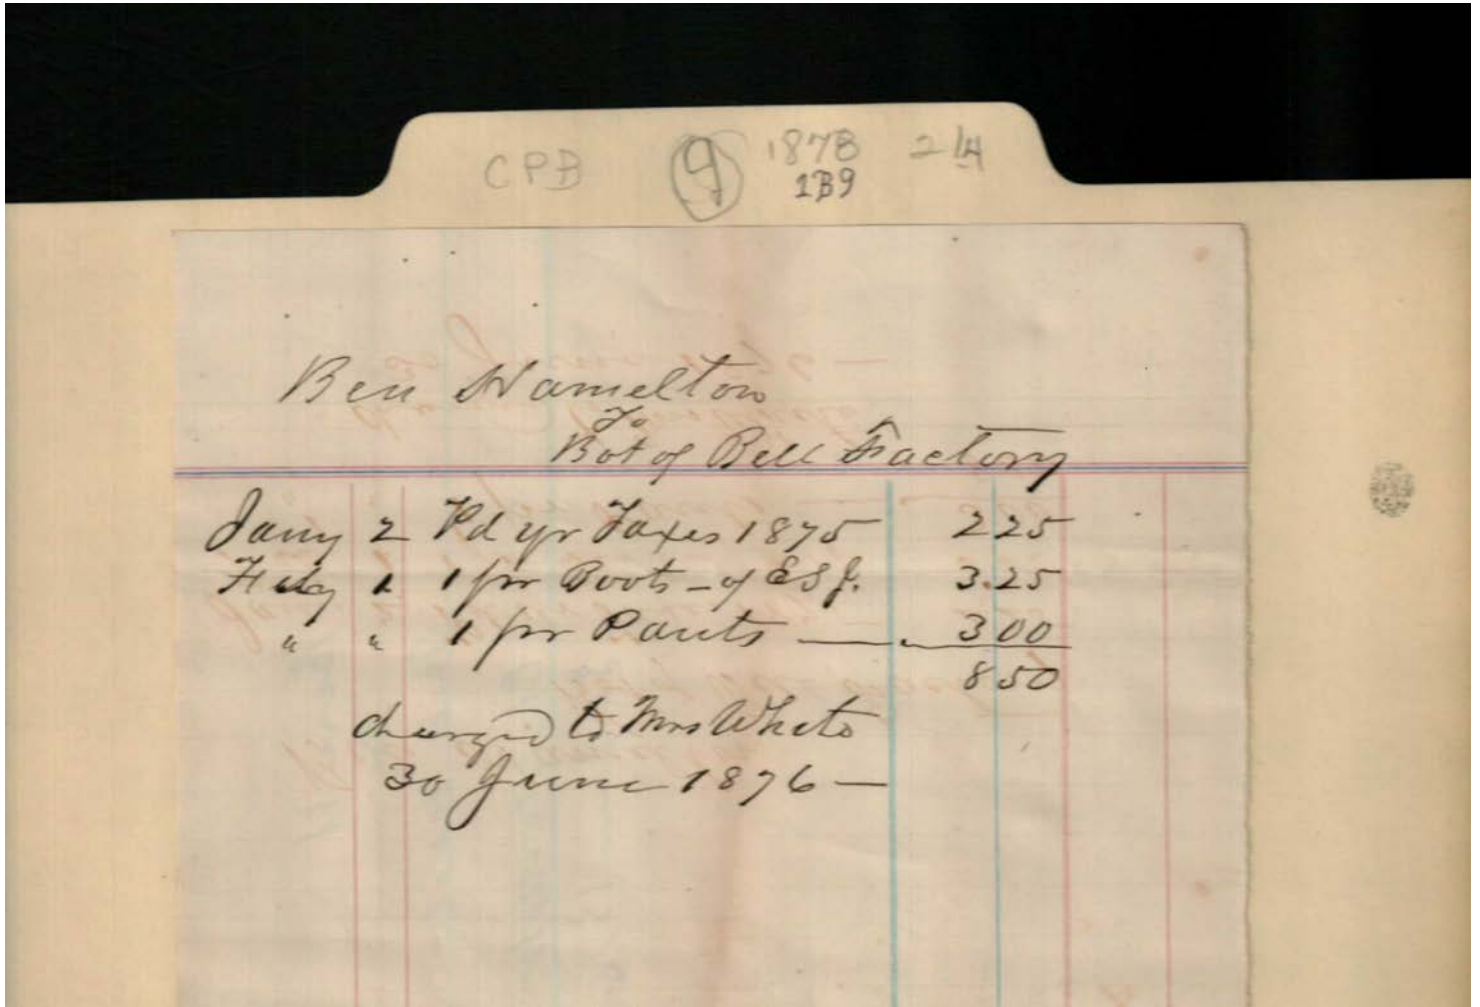 CPB 9 1878 2/4
1B9
Ben Hamelton
To
Bot of Bell Factory
Jany 2 Pd yr Taxes 1875 2 25
Feby 1 1 pr Boots - of ESJ. 3.25
" " 1 pr Pants — 3 00
8 50
charged to Mrs White
30 June 1876 —